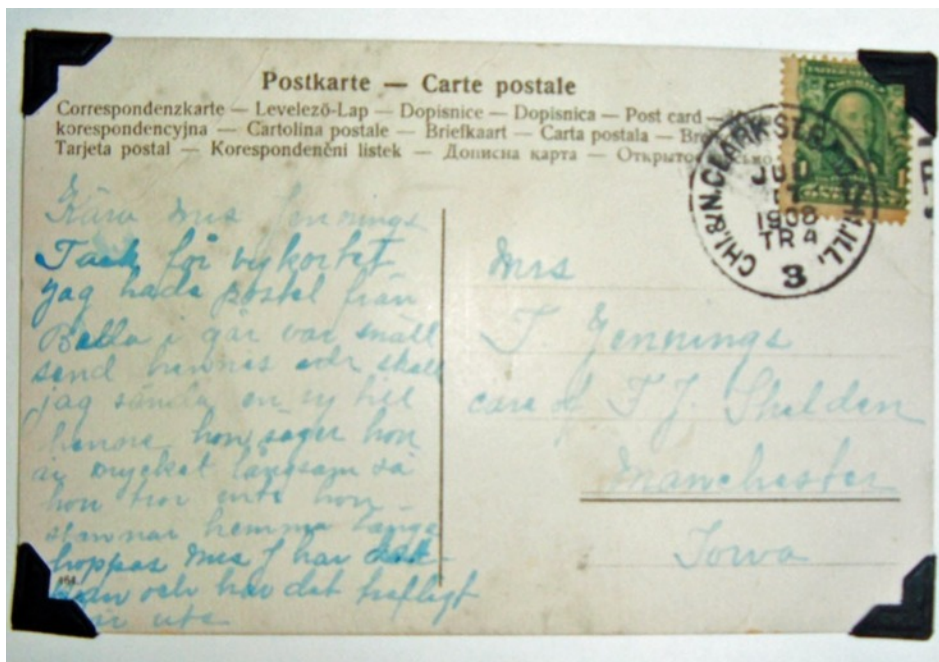 Postkarte — Carte postale
Correspondenzkarte — Levelező-Lap — Dopisnice — Dopisnica — Post card —
korespondencyjna — Cartolina postale — Briefkaart — Carta postala —
Tarjeta postal — Korespondenční listek — Дописна карта — Открытое
CHI. & N. CLARK ST. ILL.
1908
TR 4
3
Kära Mrs Jennings
Tack för vykortet
jag hade postal från
Bella i går var snäll
send hennes adr skall
jag sända en ny till
henne, hon säger hon
är mycket långsam så
hon tror inte hon
stannar hemma länge
hoppas Mrs J har det
och har det trefligt
ute
Mrs
T. Jennings
care of F J. Sheldon
Manchester
Iowa